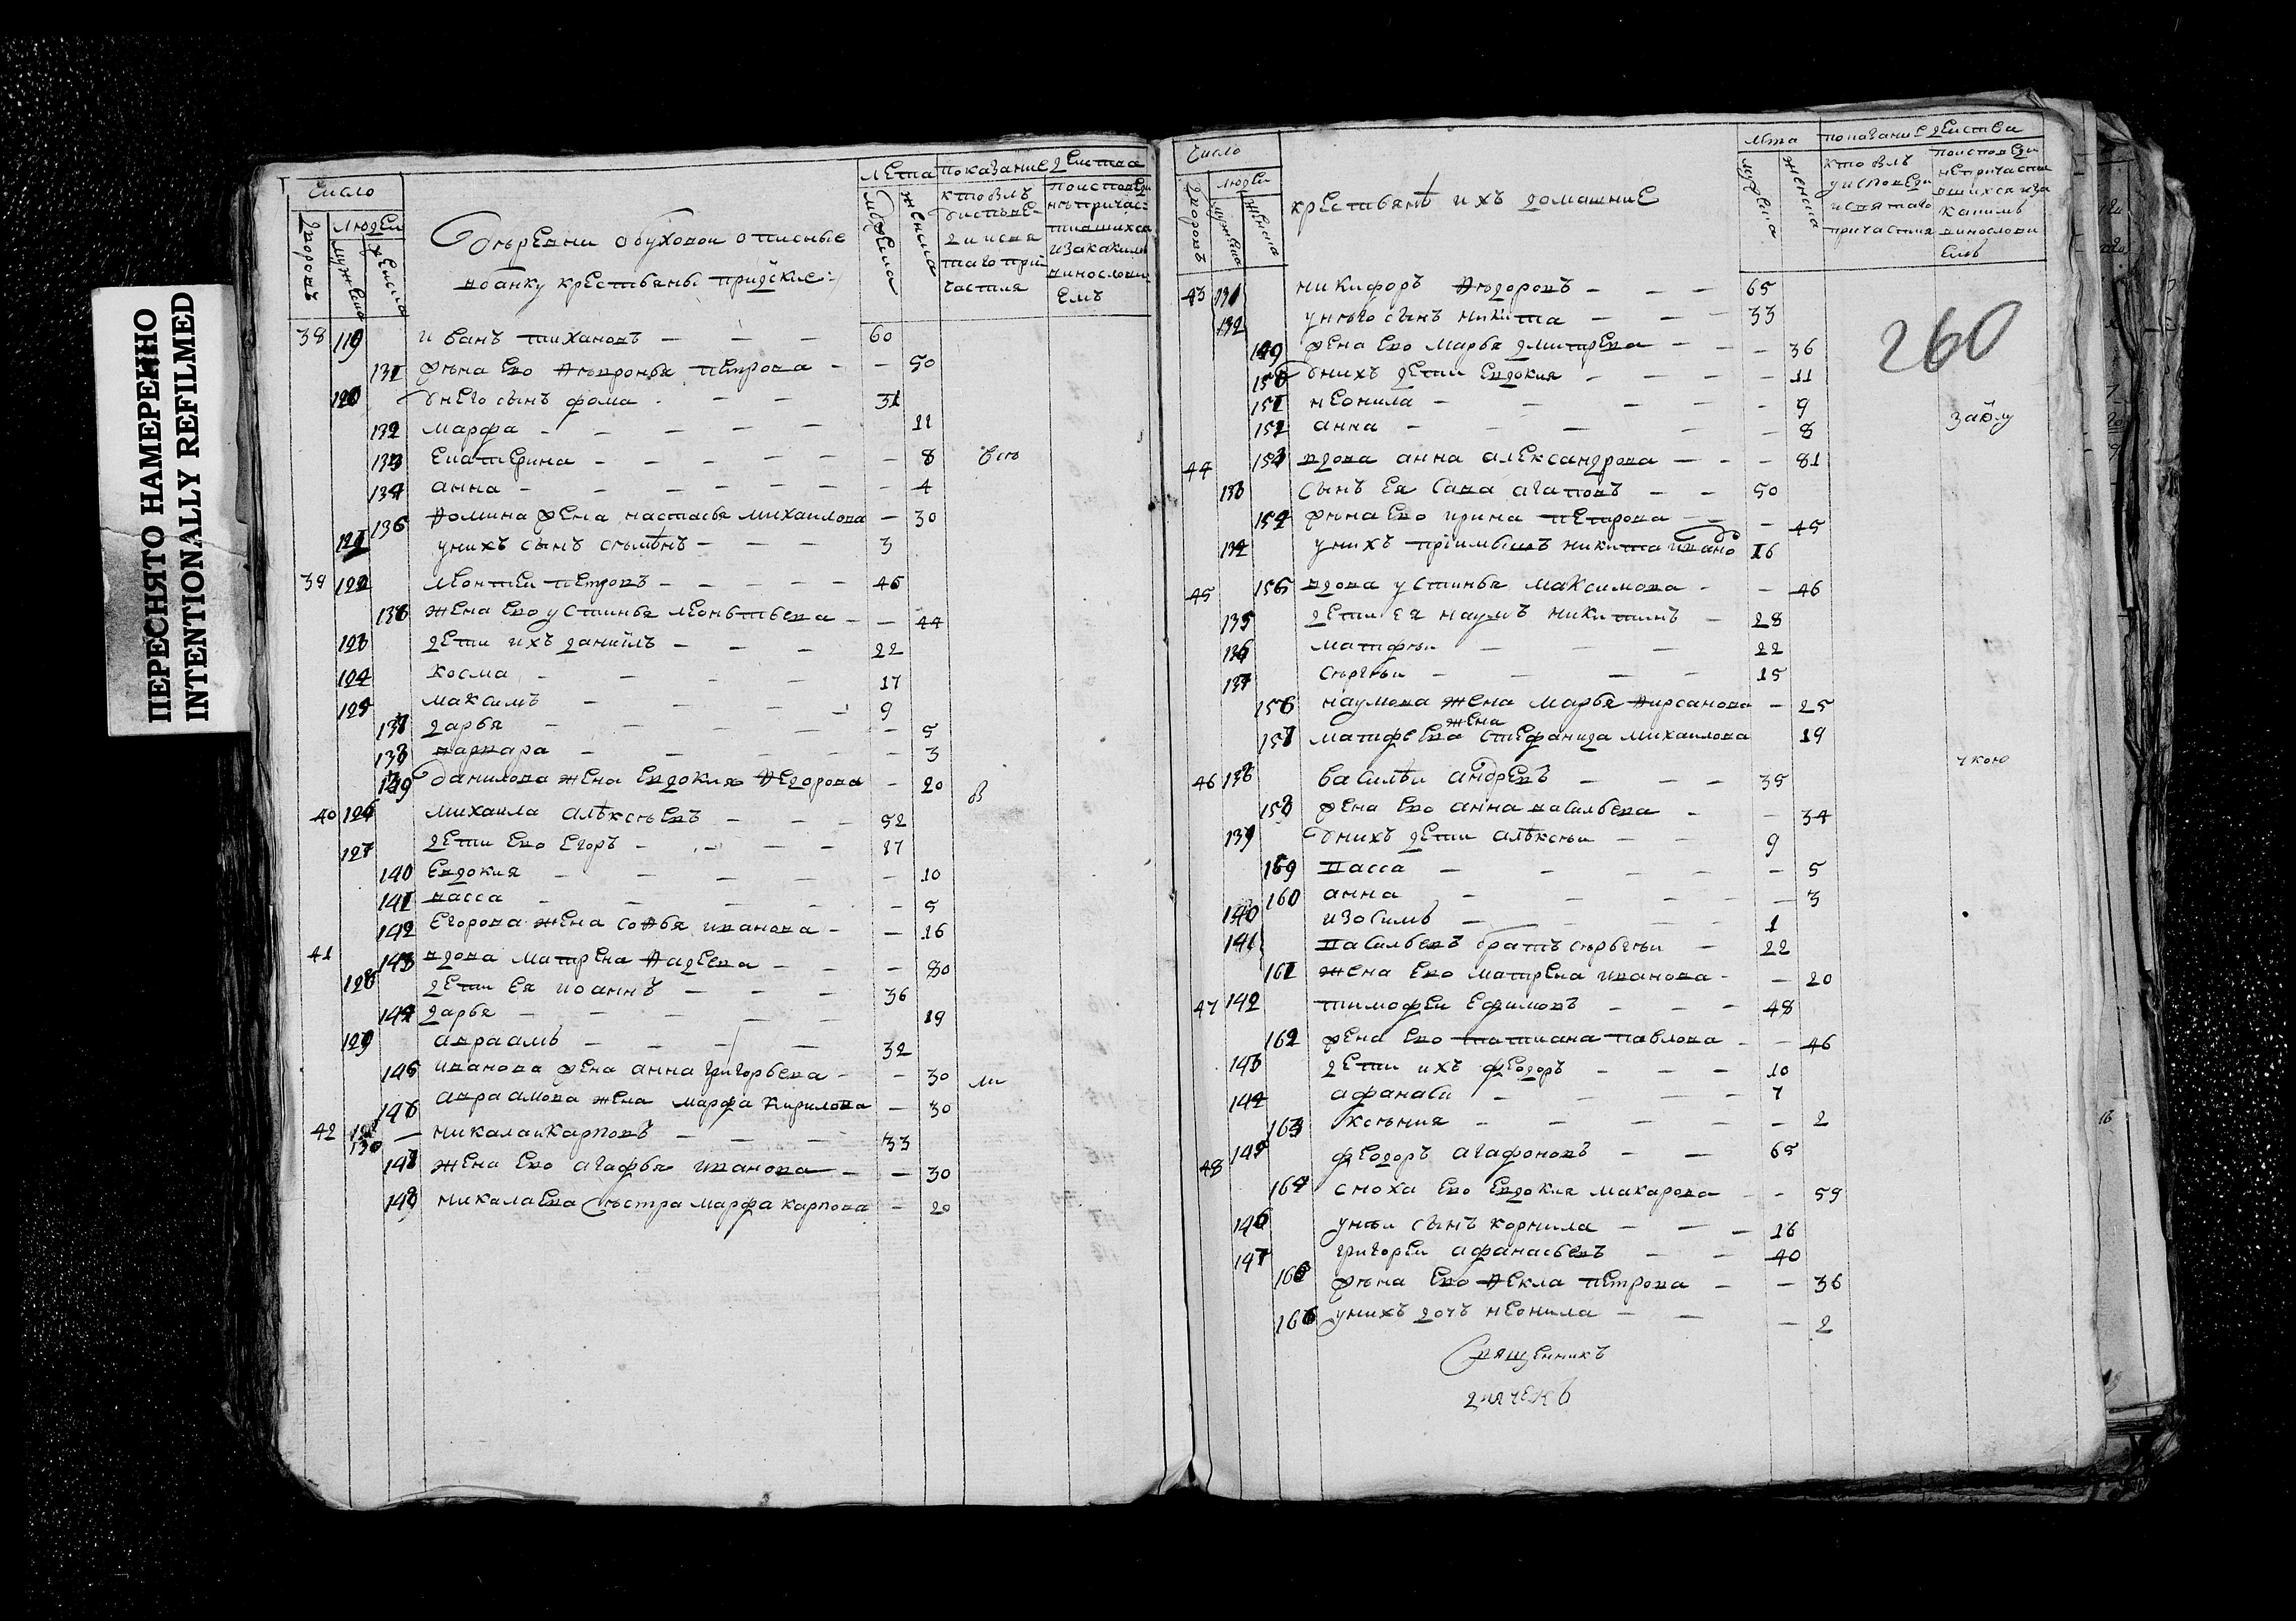 ПЕРЕСНЯТО НАМЕРЕННО
INTENTIONALLY REFILMED
Число
Дворовъ
Людеи
Мужеска
Женска
деревни обуховои описные
вбанку крестьяны
Лета
Мужеска
женска
показание деиства
кто был
38 119 иванъ тихановъ — — — 60
131 жена ево февронья петрова — — 50
120 унего сынъ фома — — 31
132 марфа — — — 11
133 екатерина — — — 8
134 анна — — — 4
135 фомина жена настасья михаилова — 30
121 унихъ сынъ семѣнъ — — — 3
39 122 леонтеи петровъ — — — 45
136 жена ево устинья леонтьева — — 44
123 дети ихъ данйлъ — — — 22
124 косма — — — 17
125 максимъ — — — 9
137 дарья — — — 5
138 варвара — — — 3
139 данилова жена евдокия федорова — 20
40 126 михаила алѣксѣевъ — — — 52
127 дети ево егоръ — — — 17
140 евдокия — — — 10
141 васса — — — 5
142 егорова жена софья иванова — — 16
41 143 вдова матрена фадеева — — — 80
128 дети ея иоаннъ — — — 36
144 дарья — — — 19
129 авраамъ — — — 32
145 иванова жена анна григорьева — — 30
146 авраамова жена марфа кирилова — 30
42 130 николаи карповъ — — — 33
147 жена ево агафья иванова — — 30
148 николаева сѣстра марфа карпова — 20
Число
Дворовъ
людеи
мужеска
женска
крестьянѣ ихъ домашние
лѣта
мужеска
женска
показание деиства
260
43 131 никифоръ федоровъ — — — 65
132 унего сынъ никита — — — 33
149 жена ево марья дмитрева — — — 36
150 унихъ дети евдокия — — — 11
151 неонила — — — 9
152 анна — — — 8
44 153 вдова анна александрова — — — 81
133 сынъ ея сава агаповъ — — 50
154 жена ево ирина петрова — — 45
134 унихъ приимышъ никита ивано 16
45 155 вдова устинья максимова — — 46
135 дети ея наумъ никитинъ — 28
136 матфеи — — — 22
137 сергеи — — — 15
156 наумова жена марья фирсанова — 25
жена
157 матфеева стефанида михаилова 19
46 138 василѣи андревъ — — — 35
158 жена ево анна васильева — — 34
139 унихъ дети алѣксеи — — 9
159 васса — — — 5
160 анна — — — 3
140 изосимъ — — — 1
141 васильевъ братъ сергѣи — 22
161 жена ево матрена иванова — — 20
47 142 тимофеи ефимовъ — — — 48
162 жена ево татиана павлова — — 46
143 дети ихъ феодоръ — — — 10
144 афанаси — — — 7
163 ксения — — — 2
48 145 феодоръ агафоновъ — — 65
164 сноха ево евдокия макарова — — 59
146 унеи сынъ корнила — — — 16
147 григореи афанасьевъ — — 40
165 жена ево фекла петрова — — 36
166 унихъ дочъ неонила — — — 2
Священникъ
диячекъ